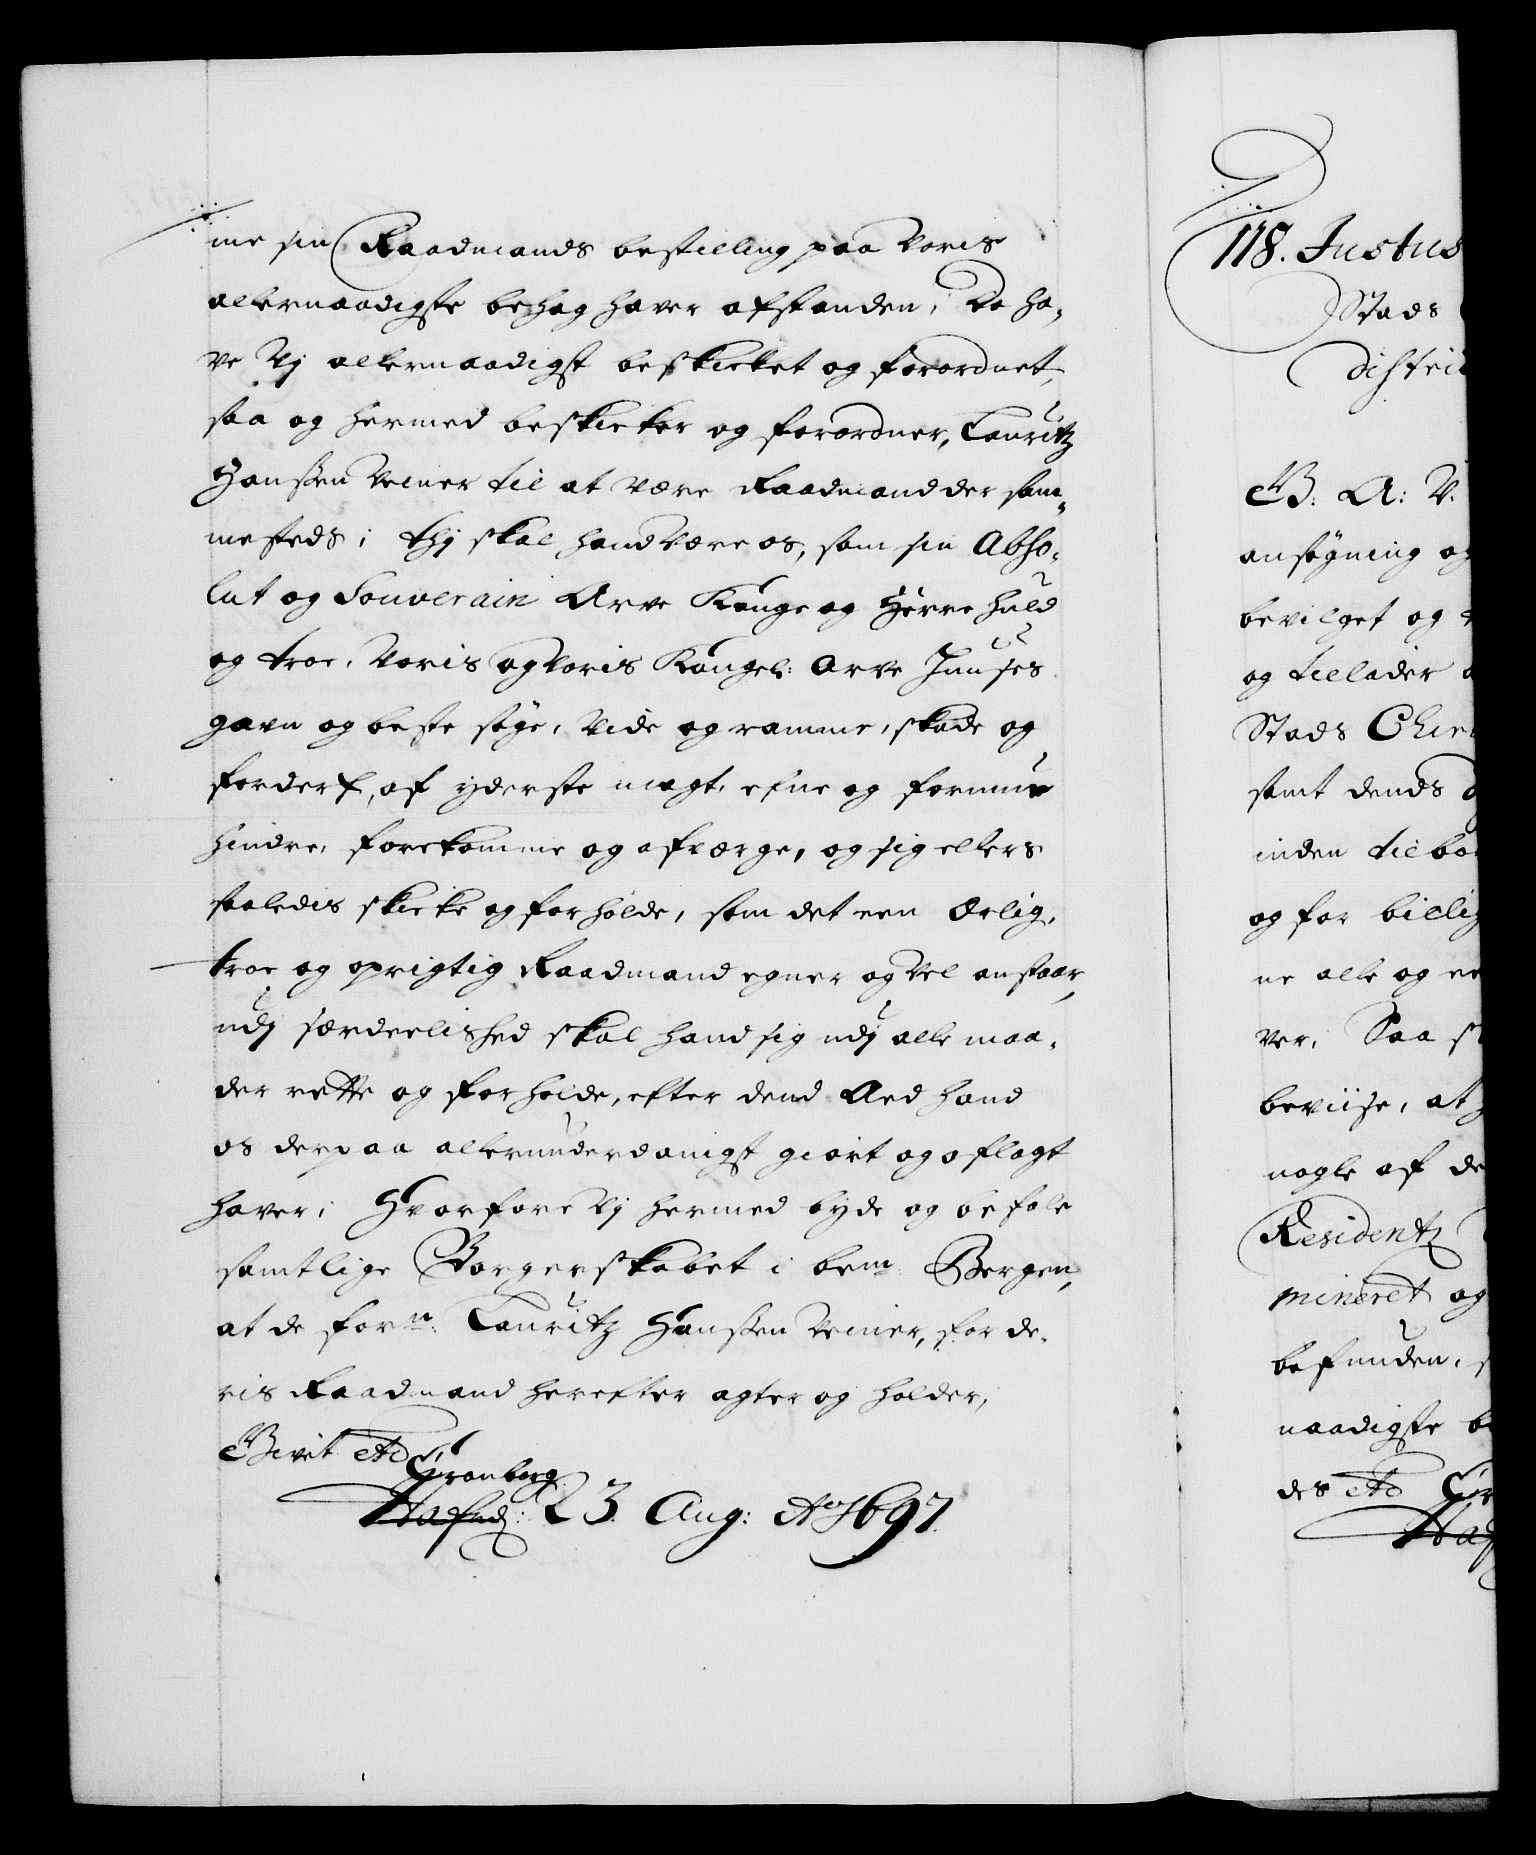 me sin Raadmands bestilling paa Voris
allernaadigste behag haver afstanden; Da ha-
ve Vj allernaadigst beskicket og forordnet,
saa og hermed beskicker og forordner, Lauritz
Hanssen Weiner til at være Raadmand der sam-
mesteds; thj skal hand være os, som sin Abso-
lut og Souverain Arve Konge og Herre huld
og troe, Voris og Voris Kongel: Arve Huuses
gavn og beste søge, Vide og ramme, skade og
forderf, af yderste magt, efne og formue
hindre, forekomme og afværge, og sig ellers
saaledis skicke og forholde, som det een Ærlig,
troe og oprigtig Raadmand egner og vel anstaar,
udj særdeelished skal hand sig udj alle maa-
der rette og forholde, efter dend Aed hand
os derpaa allerunderdanigst giort og aflagt
haver; Hvorfore Vj hermed byde og befale
samtlige Borgerskabet i bemte Bergen,
at de forn: Lauritz Hanssen Weiner, for de-
ris Raadmand herefter agter og holder,
Givet etc
Cronborg
Hafnd: 23. Aug: Ao 1697.
118. Justus
Stads
distri
G: A: V.
ansøgning og
bevilget og
og tillader
Stads Chri
samt dends
inden til
og for billig
ne alle og
ver, Saa
beviise, at
nogle af de
Residentz
mineret og
befunden,
naadigste
des etc
Haf